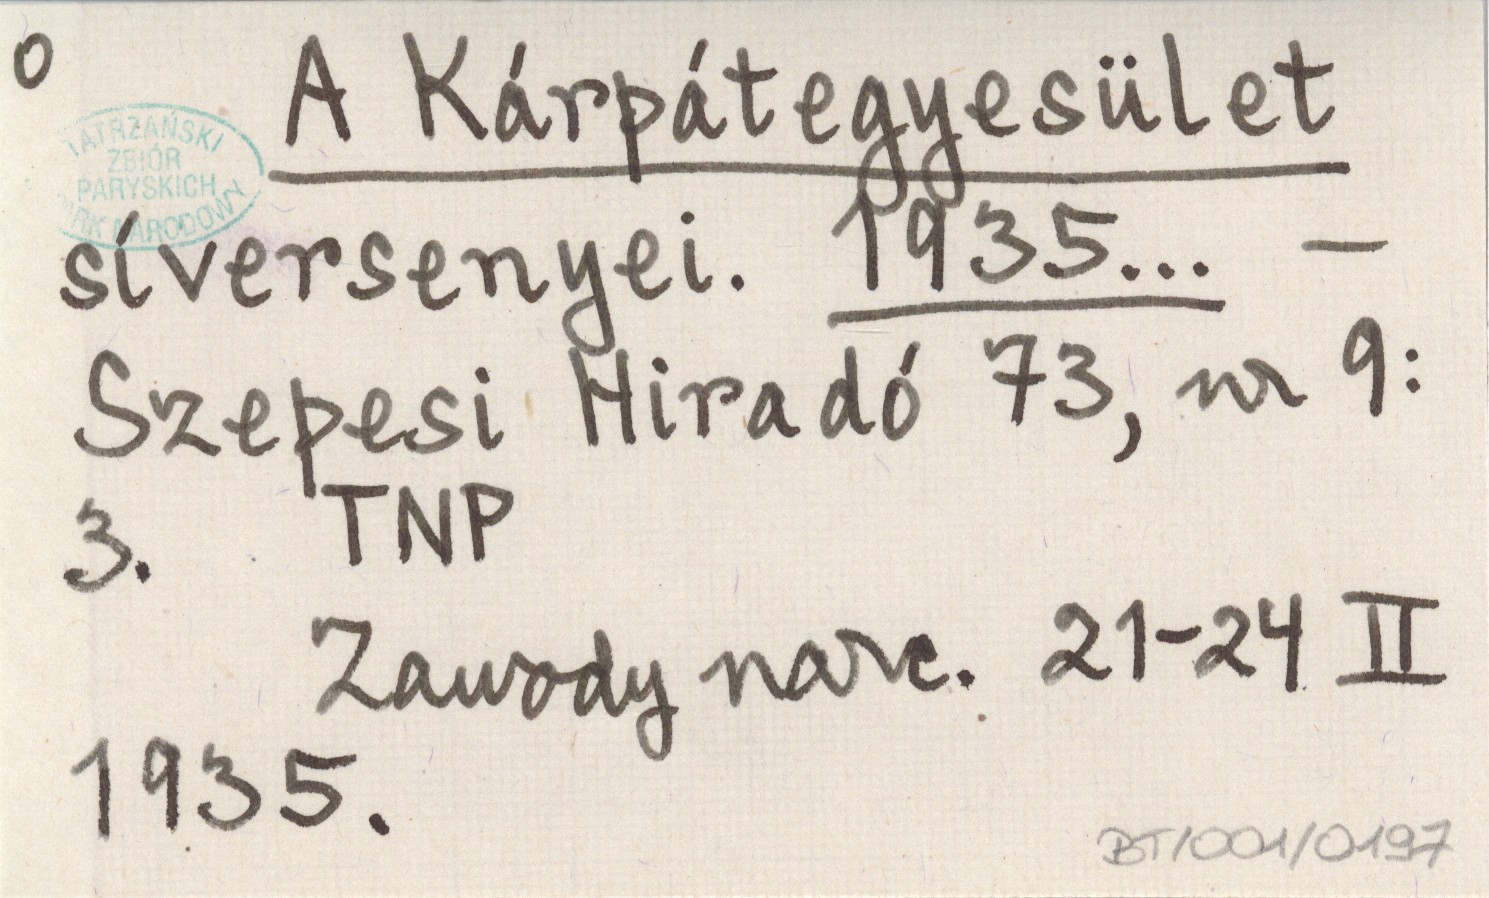 0
A Kárpátegyesület
TATRZAŃSKI
ZBIÓR
PARYSKICH
PARK NARODOWY
síversenyei. 1935... —
Szepesi Hiradó 73, nr 9:
3. TNP
Zawody narc. 21-24 II
1935.
BT/001/0197